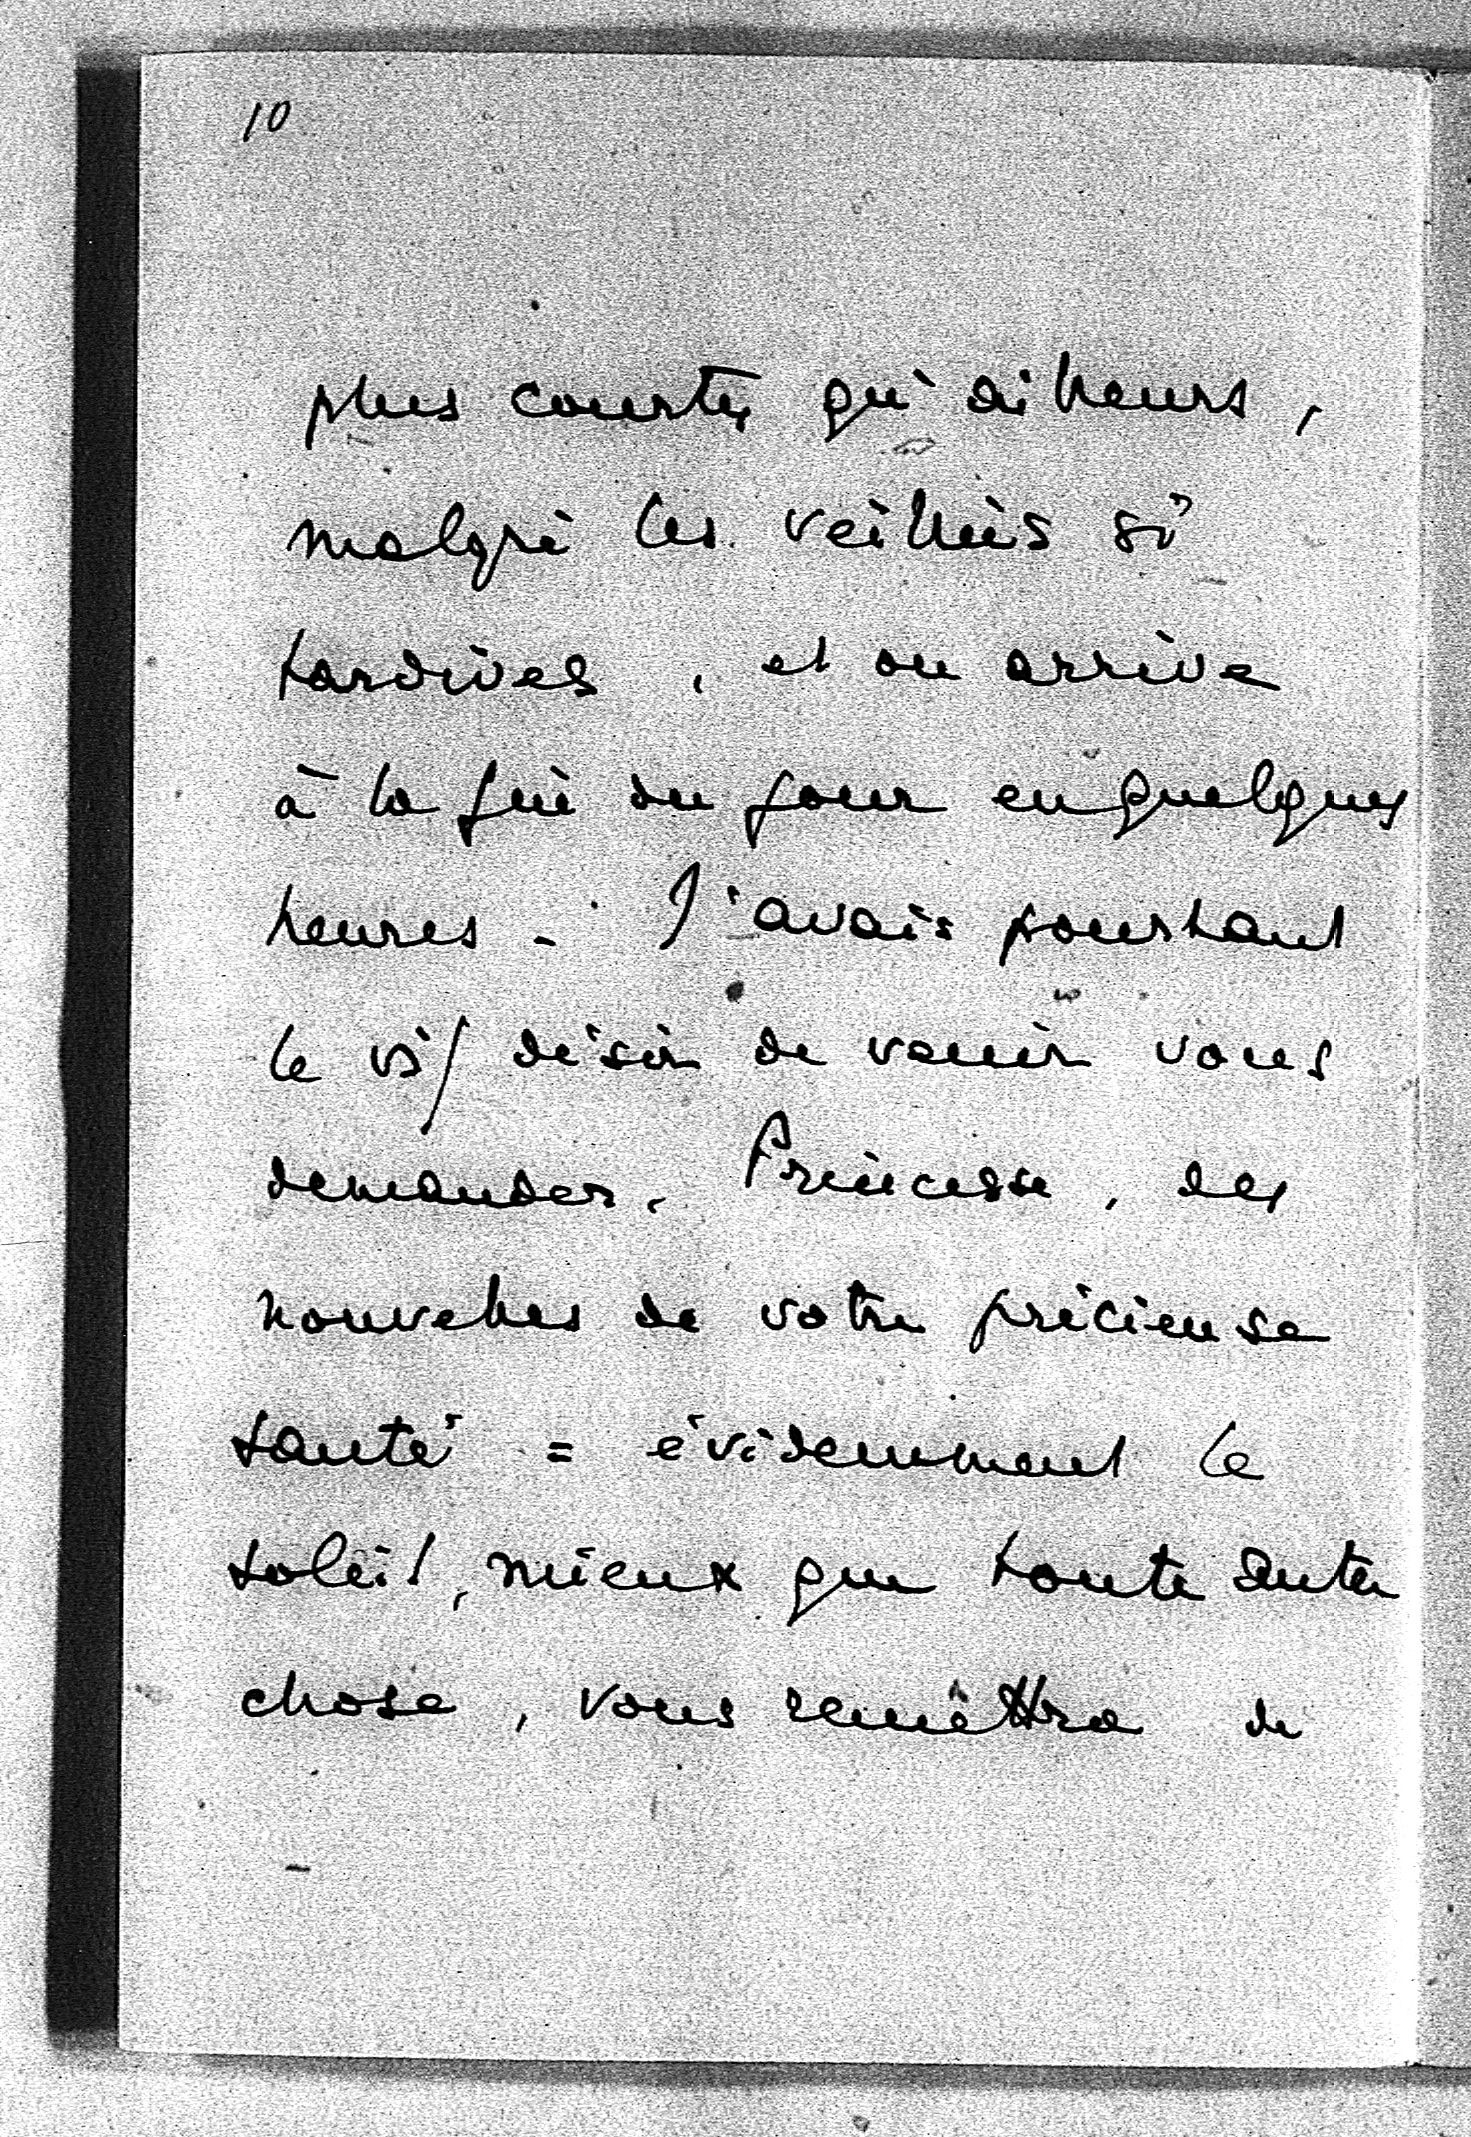 10
plus courtes qu'ailleurs,
malgré les veillées si
tardives, et on arrive
à la fin du jour en quelques
heures - J'avais pourtant
le vif désir de venir vous
demander, Princesse, des
nouvelles de votre précieuse
santé = évidemment le
soleil, mieux que toute autre
chose, vous remettra de